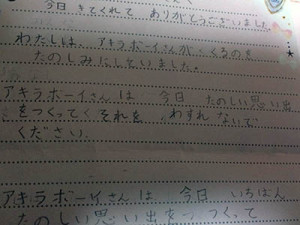 今日 きてくれて ありがとうございました。
わたしは、アキラボーイさんがくるのを
たのしみにしていました。
アキラボーイさんは 今日 たのしい思い出
をつくって それを わすれないで
ください。
アキラボーイさんは 今日 いちばん
たのしい思い出をつくって